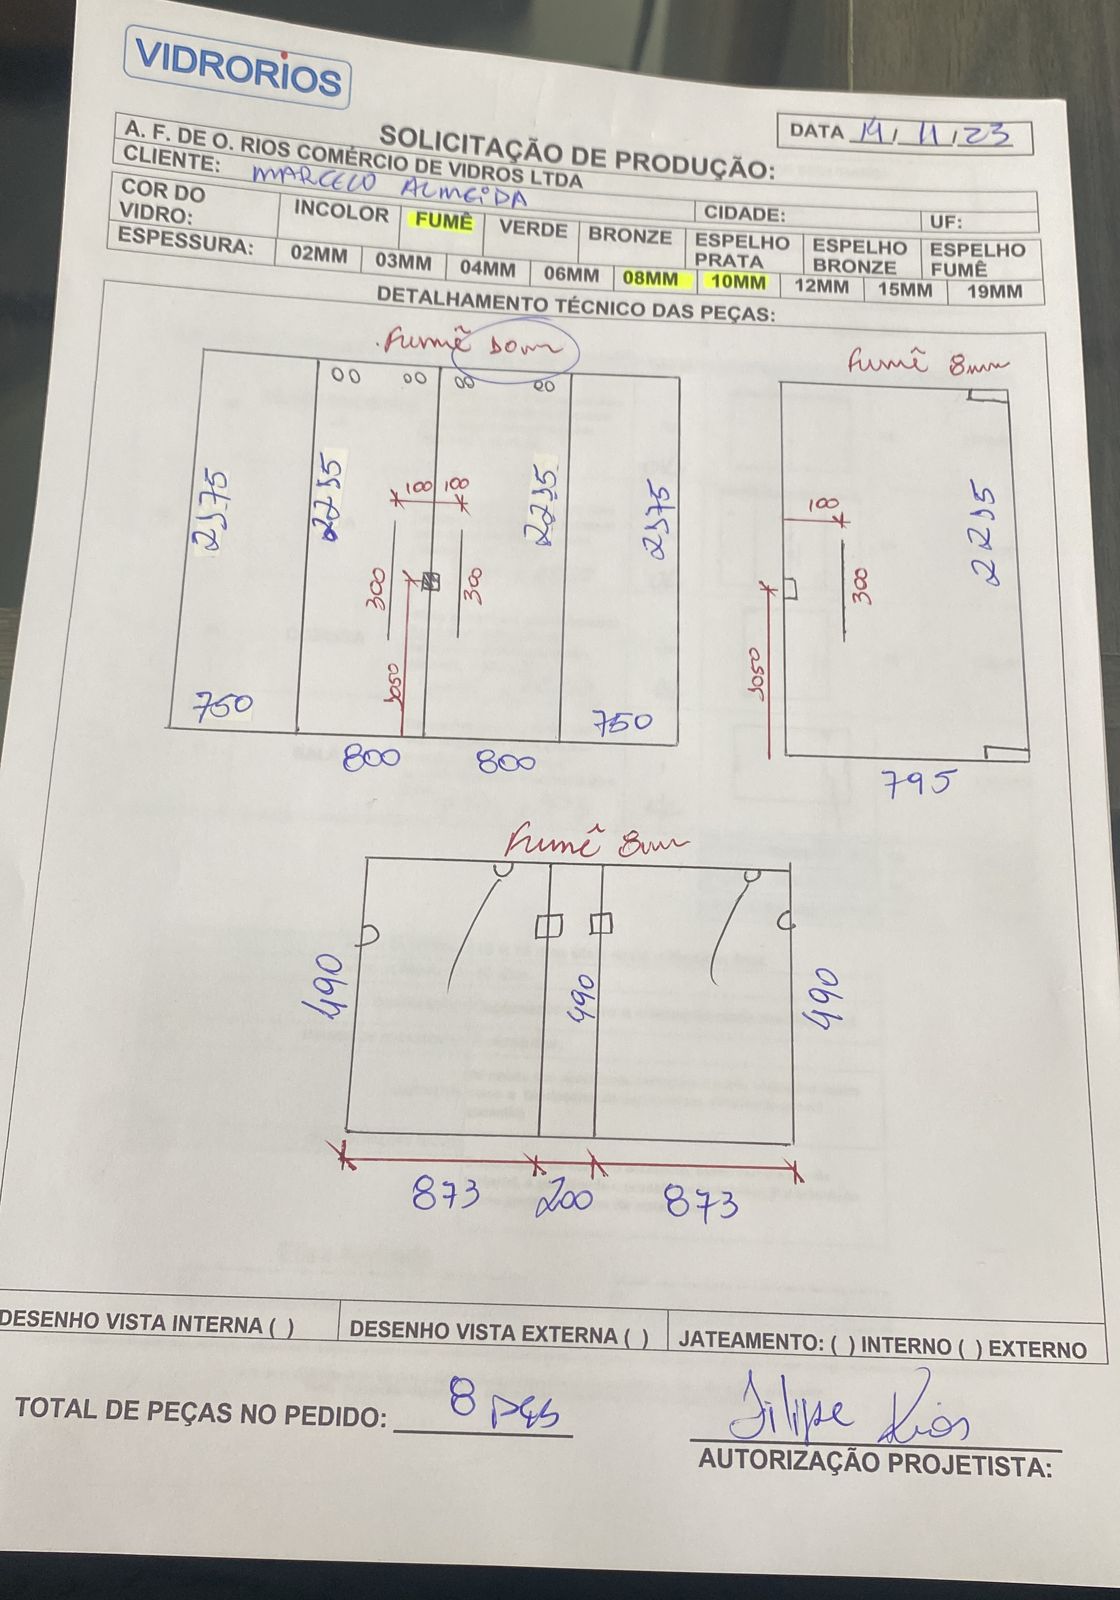 VIDRORIOS
DATA 14/11/23
SOLICITAÇÃO DE PRODUÇÃO:
A. F. DE O. RIOS COMÉRCIO DE VIDROS LTDA
CLIENTE: MARCELO ALMEIDA CIDADE: UF:
COR DO VIDRO: INCOLOR FUMÊ VERDE BRONZE ESPELHO PRATA ESPELHO BRONZE ESPELHO FUMÊ
ESPESSURA: 02MM 03MM 04MM 06MM 08MM 10MM 12MM 15MM 19MM
DETALHAMENTO TÉCNICO DAS PEÇAS:
Fumê 10mm
2175
2215
100 100
2215
2175
300
300
1050
750
750
800 800
Fumê 8mm
100
2215
300
1050
795
Fumê 8mm
490
490
490
873 200 873
DESENHO VISTA INTERNA ( ) DESENHO VISTA EXTERNA ( ) JATEAMENTO: ( ) INTERNO ( ) EXTERNO
TOTAL DE PEÇAS NO PEDIDO: 8 pçs
Filipe Rios
AUTORIZAÇÃO PROJETISTA: